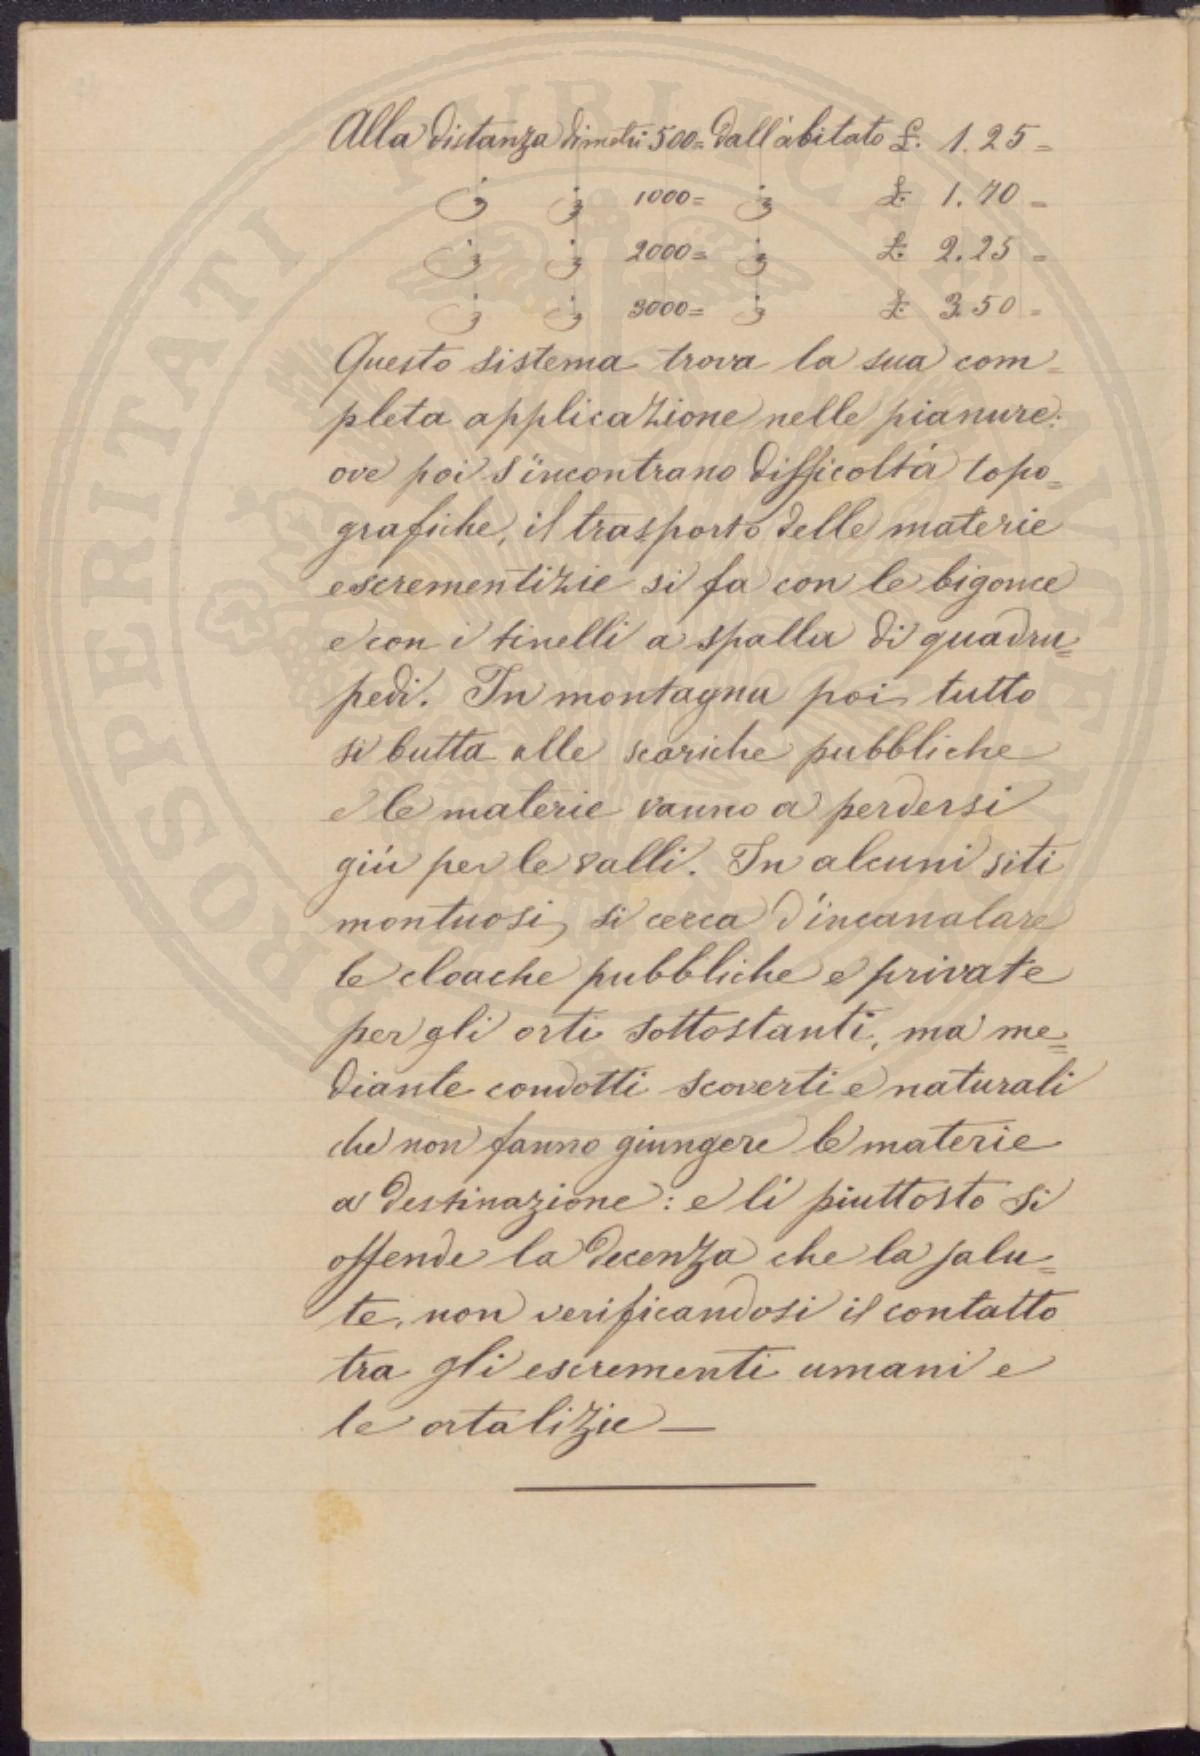 Alla distanza di metri 500= dall'abitato £. 1.25=
" " 1000= " £. 1.70=
" " 2000= " £. 2.25=
" " 3000= " £. 3.50=
Questo sistema trova la sua com=
pleta applicazione nelle pianure:
ove poi s'incontrano difficoltà topo=
grafiche, il trasporto delle materie
escrementizie si fa con le bigonce
e con i tinelli a spalla di quadru=
pedi. In montagna poi tutto
si butta alle scariche pubbliche
e le materie vanno a perdersi
giù per le valli. In alcuni siti
montuosi, si cerca d'incanalare
le cloache pubbliche e private
per gli orti sottostanti, ma me=
diante condotti scoverti e naturali
che non fanno giungere le materie
a destinazione: e lì piuttosto si
offende la decenza che la salu=
te, non verificandosi il contatto
tra gli escrementi umani e
le ortalizie —
PROSPERITATI PUBLICAE AUGENDAE